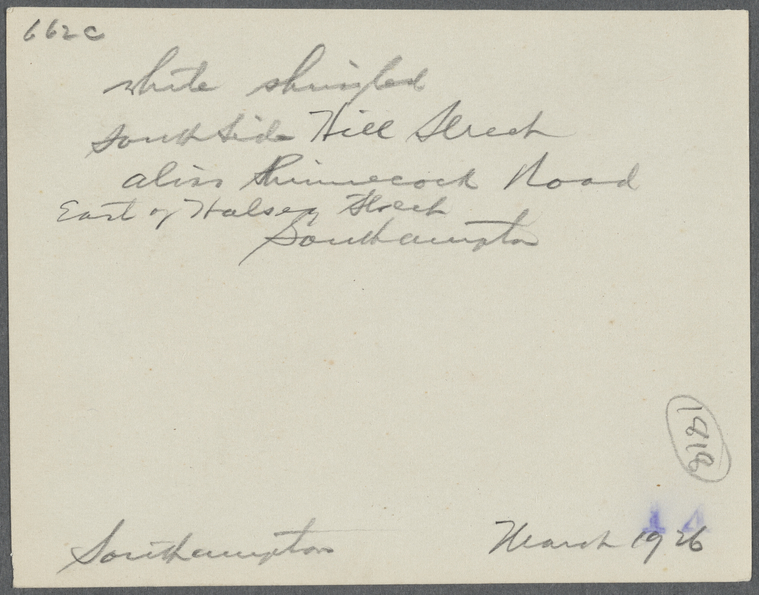 662c
white shingled
south side Hill Street
alias Shinnecock Road
East of Halsey Street
Southampton
1818
14
Southampton March 1926